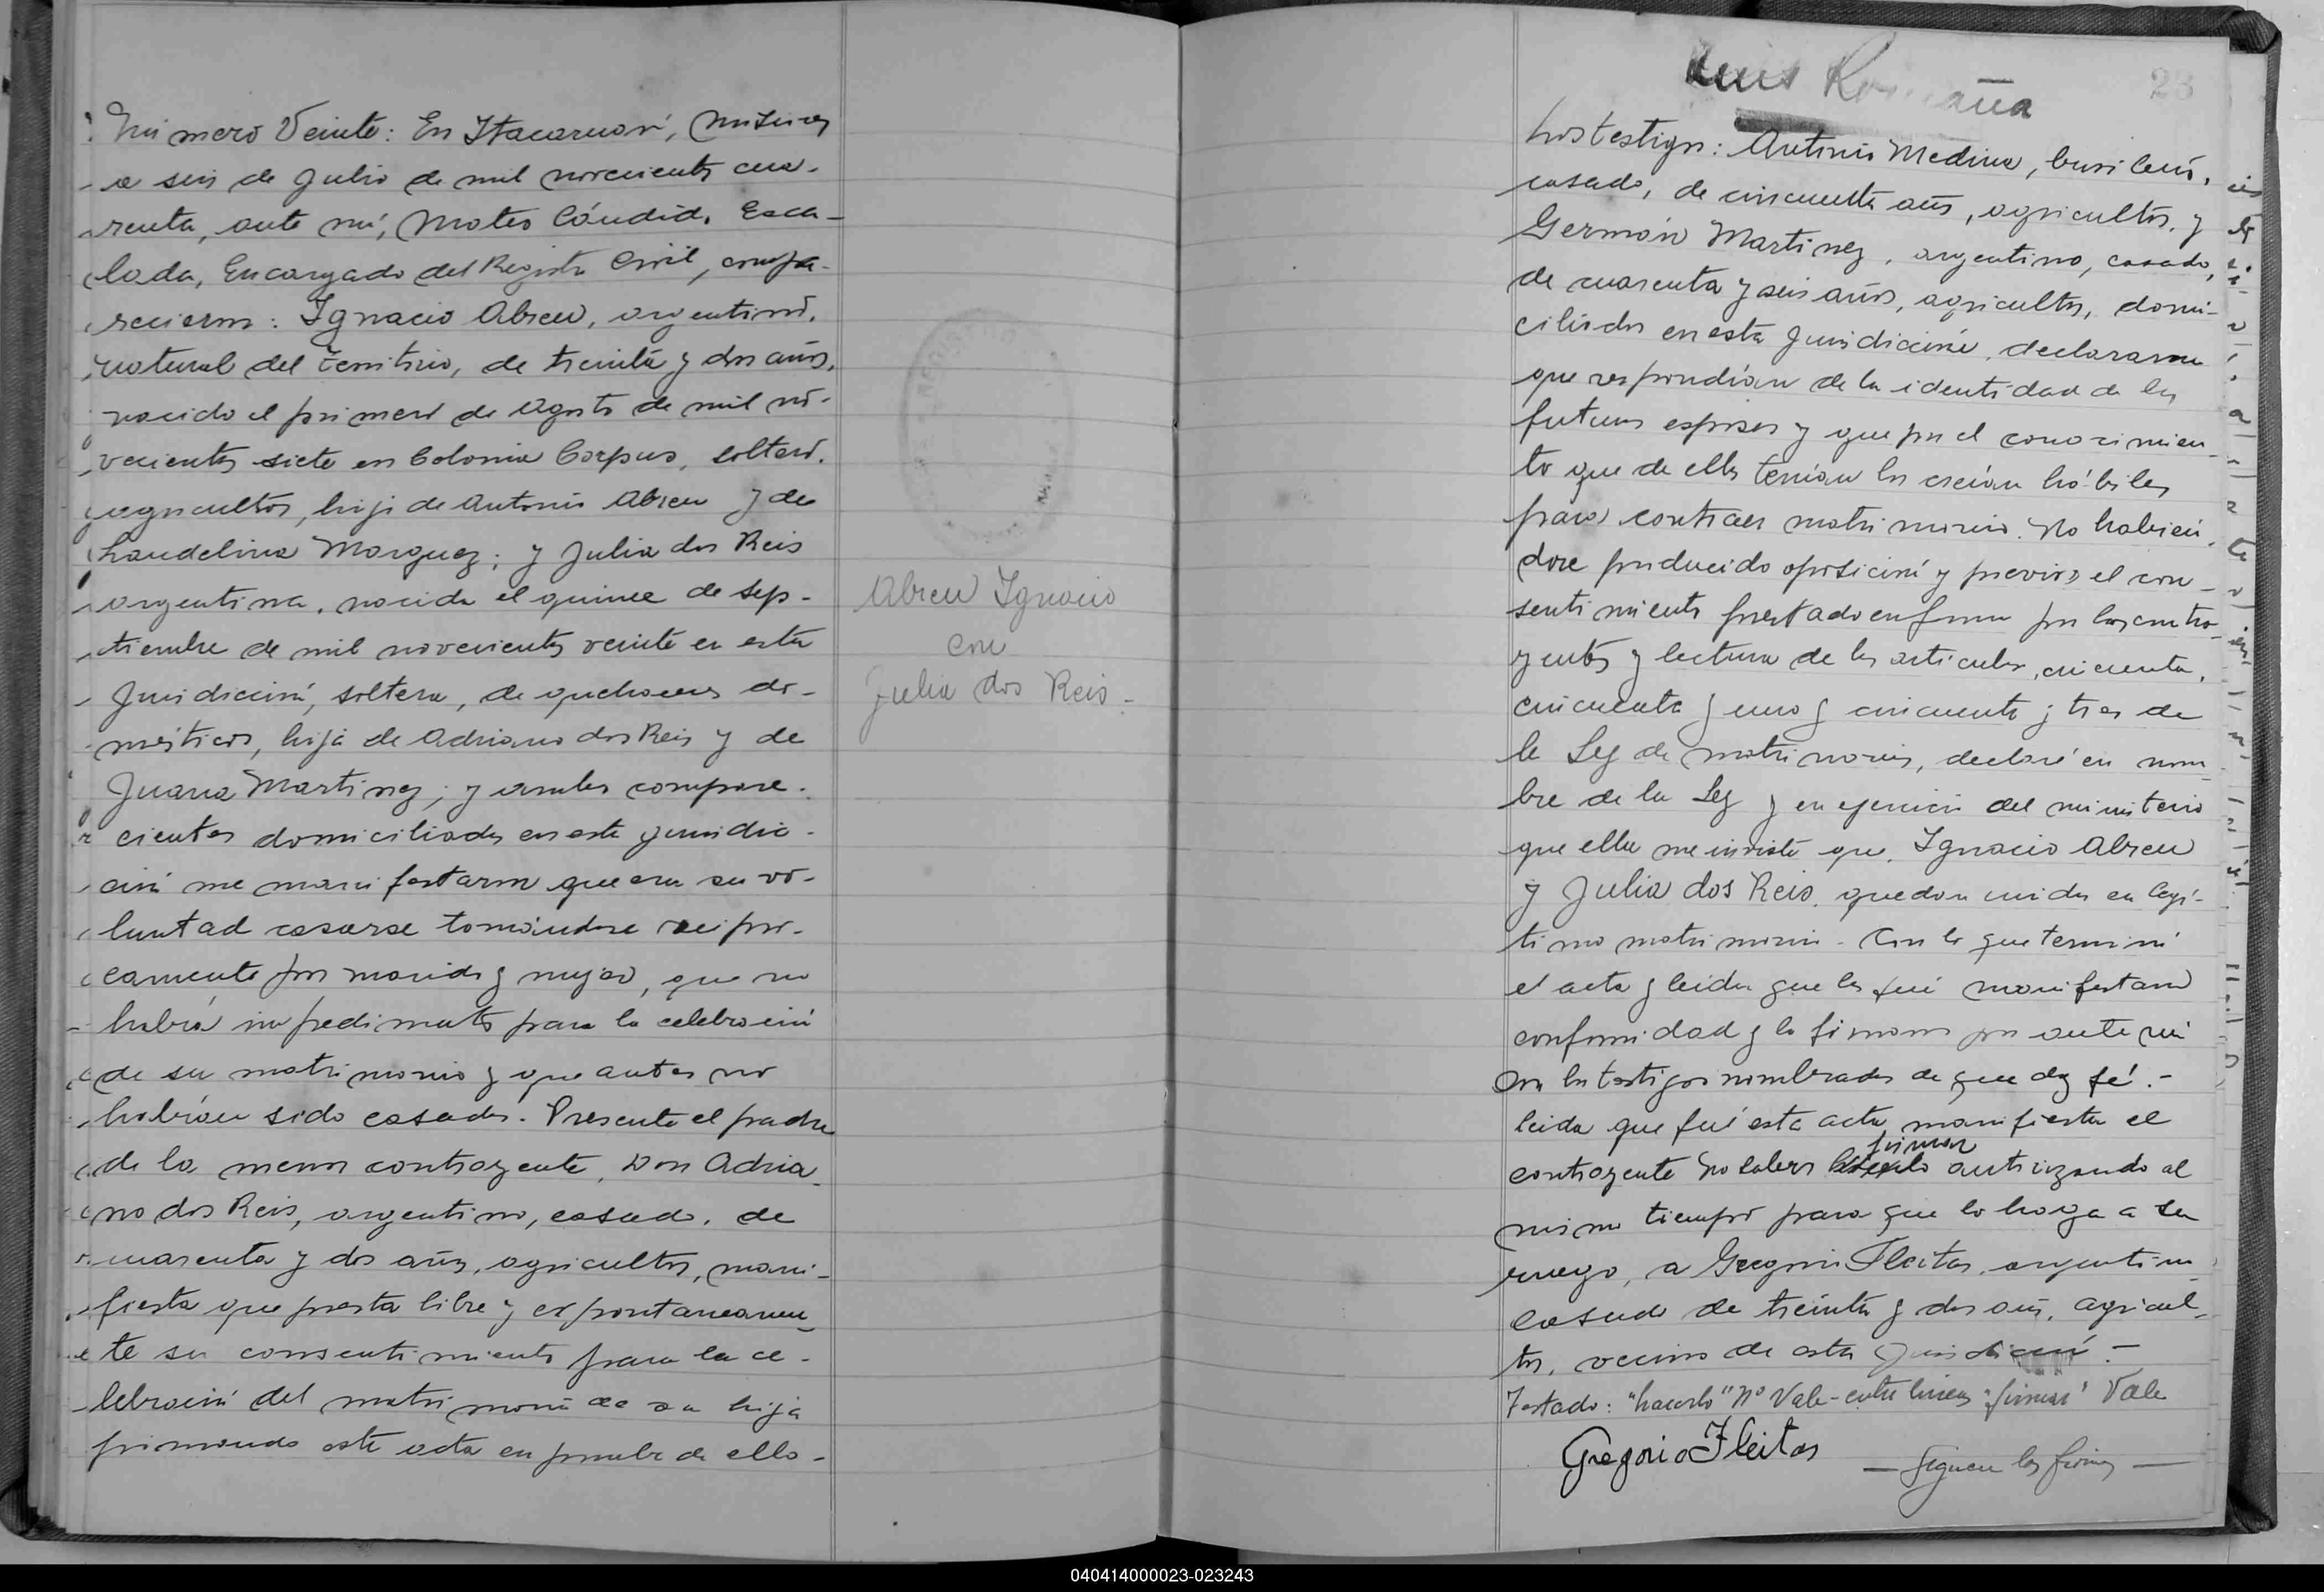 Número Veinte: En Itacaruaré, Misiones
a seis de Julio de mil novecientos cua-
renta, ante mí, Mateo Cándido Esca-
lada, Encargado del Registro Civil, compa-
recieron: Ignacio Abreu, argentino,
natural del Territorio, de treinta y dos años,
nacido el primero de Agosto de mil no-
vecientos siete en Colonia Corpus, soltero,
agricultor, hijo de Antonio Abreu y de
Laudelina Marquez; y Julia dos Reis
argentina, nacida el quince de sep-
tiembre de mil novecientos veinte en esta
Jurisdicción, soltera, de quehaceres do-
mésticos, hija de Adriano dos Reis y de
Juana Martinez; y ambos compare-
cientes domiciliados en esta jurisdic-
ción me manifestaron que era su vo-
luntad casarse tomándose recipro-
camente por marido y mujer, que no
había impedimento para la celebración
de su matrimonio y que antes no
habían sido casados. Presente el padre
de la menor contrayente, Don Adria-
no dos Reis, argentino, casado, de
cuarenta y dos años, agricultor, mani-
fiesta que presta libre y espontaneamen-
te su consentimiento para la ce-
lebración del matrimonio de su hija
firmando este acta en prueba de ello-
Abreu Ignacio
con
Julia dos Reis-
Luis Romaña
23
Los testigos: Antonio Medina, brasilero,
casado, de cincuenta años, agricultor, y
Germán Martinez, argentino, casado,
de cuarenta y seis años, agricultor, domi-
ciliados en esta Jurisdicción, declararon
que respondían de la identidad de los
futuros esposos y que por el conocimien-
to que de ellos tenían los creían hábiles
para contraer matrimonio. No habién-
dose producido oposición y previo el con-
sentimiento prestado en forma por los contra-
yentes y lectura de los artículos, cincuenta,
cincuenta y uno y cincuenta y tres de
la Ley de matrimonio, declaré en nom-
bre de la Ley y en ejercicio del ministerio
que ella me inviste que, Ignacio Abreu
y Julia dos Reis, quedan unidos en legí-
timo matrimonio. Con lo que terminó
el acta y leída que les fué manifestaron
conformidad y la firmaron por ante mí
con los testigos nombrados de que doy fé.-
leida que fué esta acta manifiesta el
firmar
contrayente no saber hacerlo autorizando al
mismo tiempo para que lo haga a su
ruego, a Gregorio Fleitas, argentino
casado de treinta y dos años, agricul-
tor, vecino de esta Jurisdicción.-
Testado: "hacerlo" Nº Vale-entre lineas "firmar" Vale
Gregorio Fleitas
— Siguen las firmas —
040414000023-023243